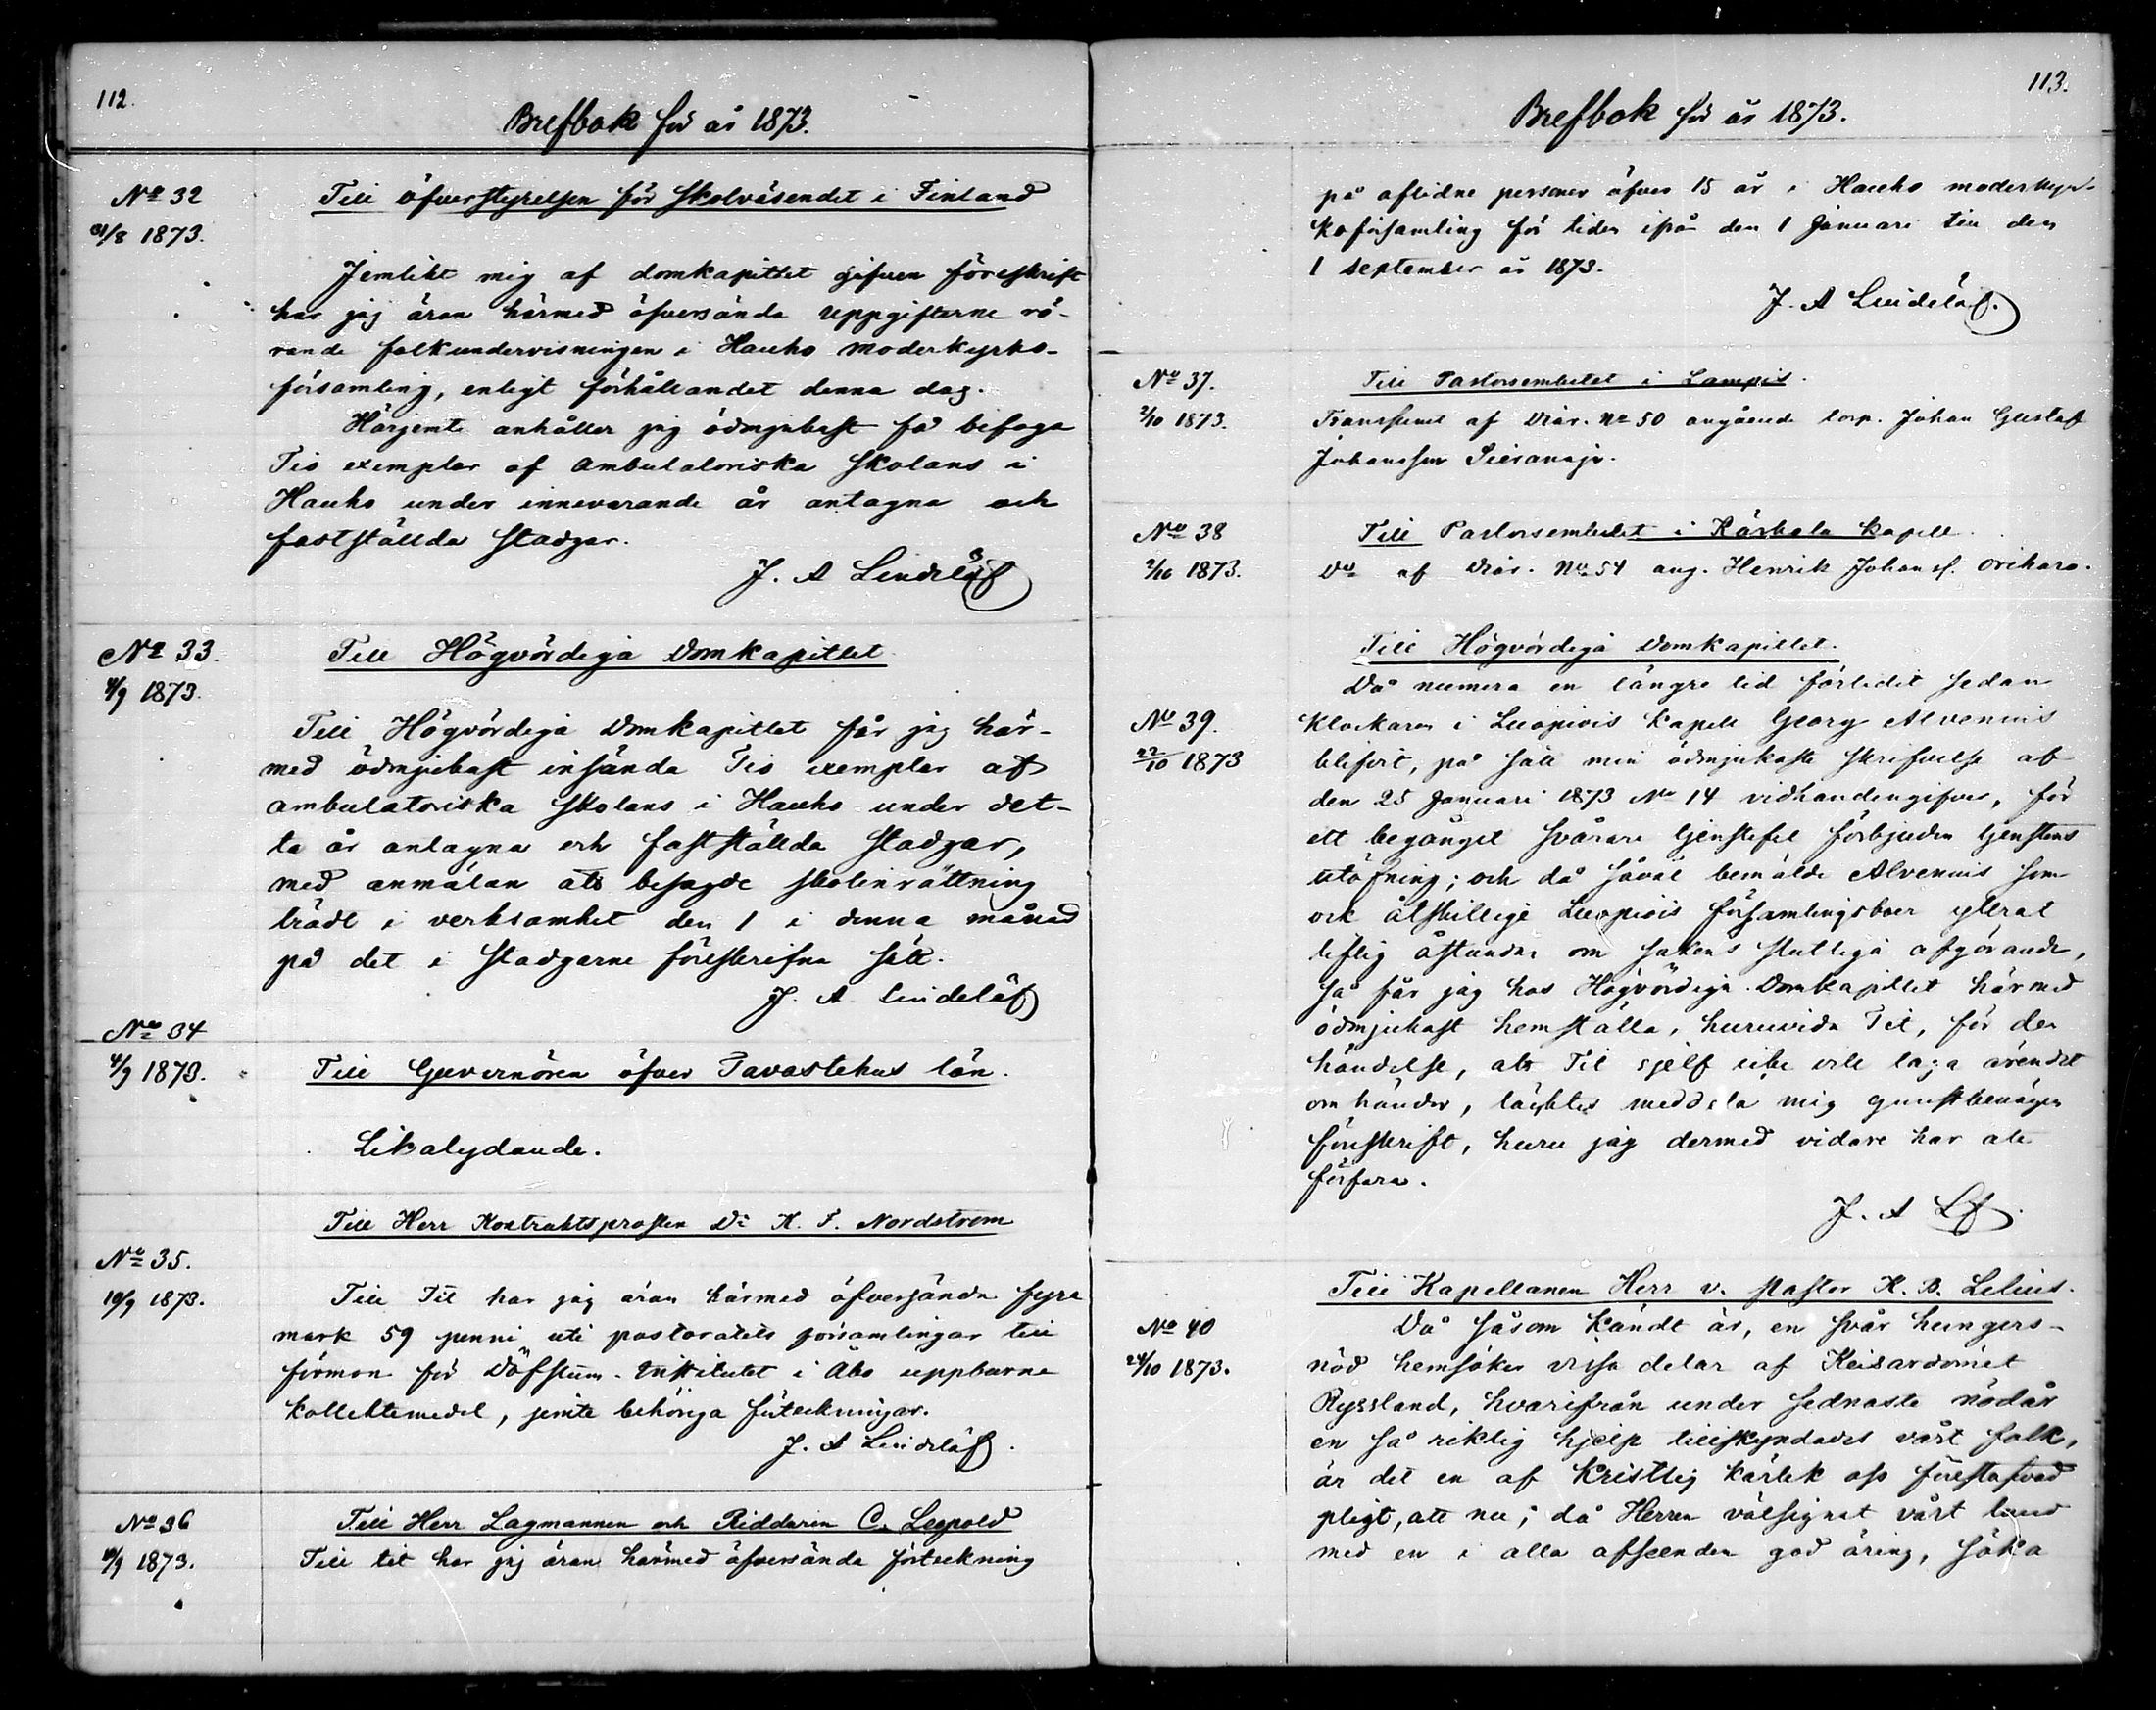 112.
Brefbok för år 1873.
No 32
31/8 1873.
Till öfverstyrelsen för skolväsendet i Finland
Jemlikt mig af domkapitlet gifven föreskrift
har jag äran härmed öfversända uppgifterne rö-
rande folkundervisningen i Hauho moderkyrko-
församling, enligt förhållandet denna dag.
Härjemte anhåller jag ödmjukast få bifoga
Tio exemplar af ambulatoriska skolans i
Hauho under innevarande år antagna och
fastställda stadgar.
J. A Lindelöf
No 33.
4/9 1873.
Till Högvördiga Domkapitlet
Till Högvördiga Domkapitlet får jag här-
med ödmjukast insända Tio exemplar af
ambulatoriska skolans i Hauho under det-
ta år antagna och fastställda stadgar,
med anmälan att besagde skolinrättning
trädt i verksamhet den 1 i denna månad
på det i stadgarne föreskrifna sätt.
J. A Lindelöf
No 34
4/9 1873.
Till Guvernören öfver Tavastehus län.
Likalydande.
Till Herr Kontraktsprosten Dr K. F. Nordström
No 35.
10/9 1873.
Till Tit har jag äran härmed öfversända fyra
mark 59 penni uti pastoratets församlingar till
förmon för Döfstum-Institutet i Åbo uppburne
kollektemedel, jemte behöriga förteckningar.
J. A Lindelöf.
No 36
10/9 1873.
Till Herr Lagmannen och Riddaren C. Leopold
Till tit har jag äran härmed öfversända förteckning
113.
Brefbok för år 1873.
på aflidne personer öfver 15 år i Hauho moderkyr-
koförsamling för tiden ifrån den 1 Januari till den
1 september år 1873.
J. A Lindelöf.
No 37.
2/10 1873.
Till Pastorsembetet i Lampis.
Transsumt af Diar. No 50 angående torp. Johan Gustaf
Johansson
No 38
2/10 1873.
Till Pastorsembetet i Kärkola kapell.
Do af Diar. No 54 ang. Henrik Johanss. Orihara.
Till Högvördiga Domkapitlet.
Då numera en längre tid förlidit sedan
No 39.
22/10 1873
klockaren i Luopiois kapell Georg Alvenius
blifvit, på sätt min ödmjukaste skrifvelse af
den 25 Januari 1873 No 14 vidhandengifver, för
ett begånget svårare tjenstefel förbjuden tjenstens
utöfning; och då såväl bemälde Alvenius som
ock åtskillige Luopiois församlingsboer yttrat
liflig åstundan om sakens slutliga afgörande,
så får jag hos Högvördiga Domkapitlet härmed
ödmjukast hemställa, huruvida Tit, för den
händelse, att Tit sjelf icke vill taga ärendet
om händer, täcktes meddela mig gunstbenägen
föreskrift, huru jag dermed vidare har att
förfara.
J. A Lf.
Till Kapellanen Herr v. Pastor K. B. Lilius.
No 40
24/10 1873.
Då såsom kändt är, en svår hungers-
nöd hemsöker vissa delar af Keisardömet
Ryssland, hvarifrån under sednaste nödår
en så riklig hjelp tillskyndades vårt folk,
är det en af kristlig kärlek oss förestafvad
pligt, att nu, då Herren välsignat vårt land
med en i alla afseenden god äring, söka